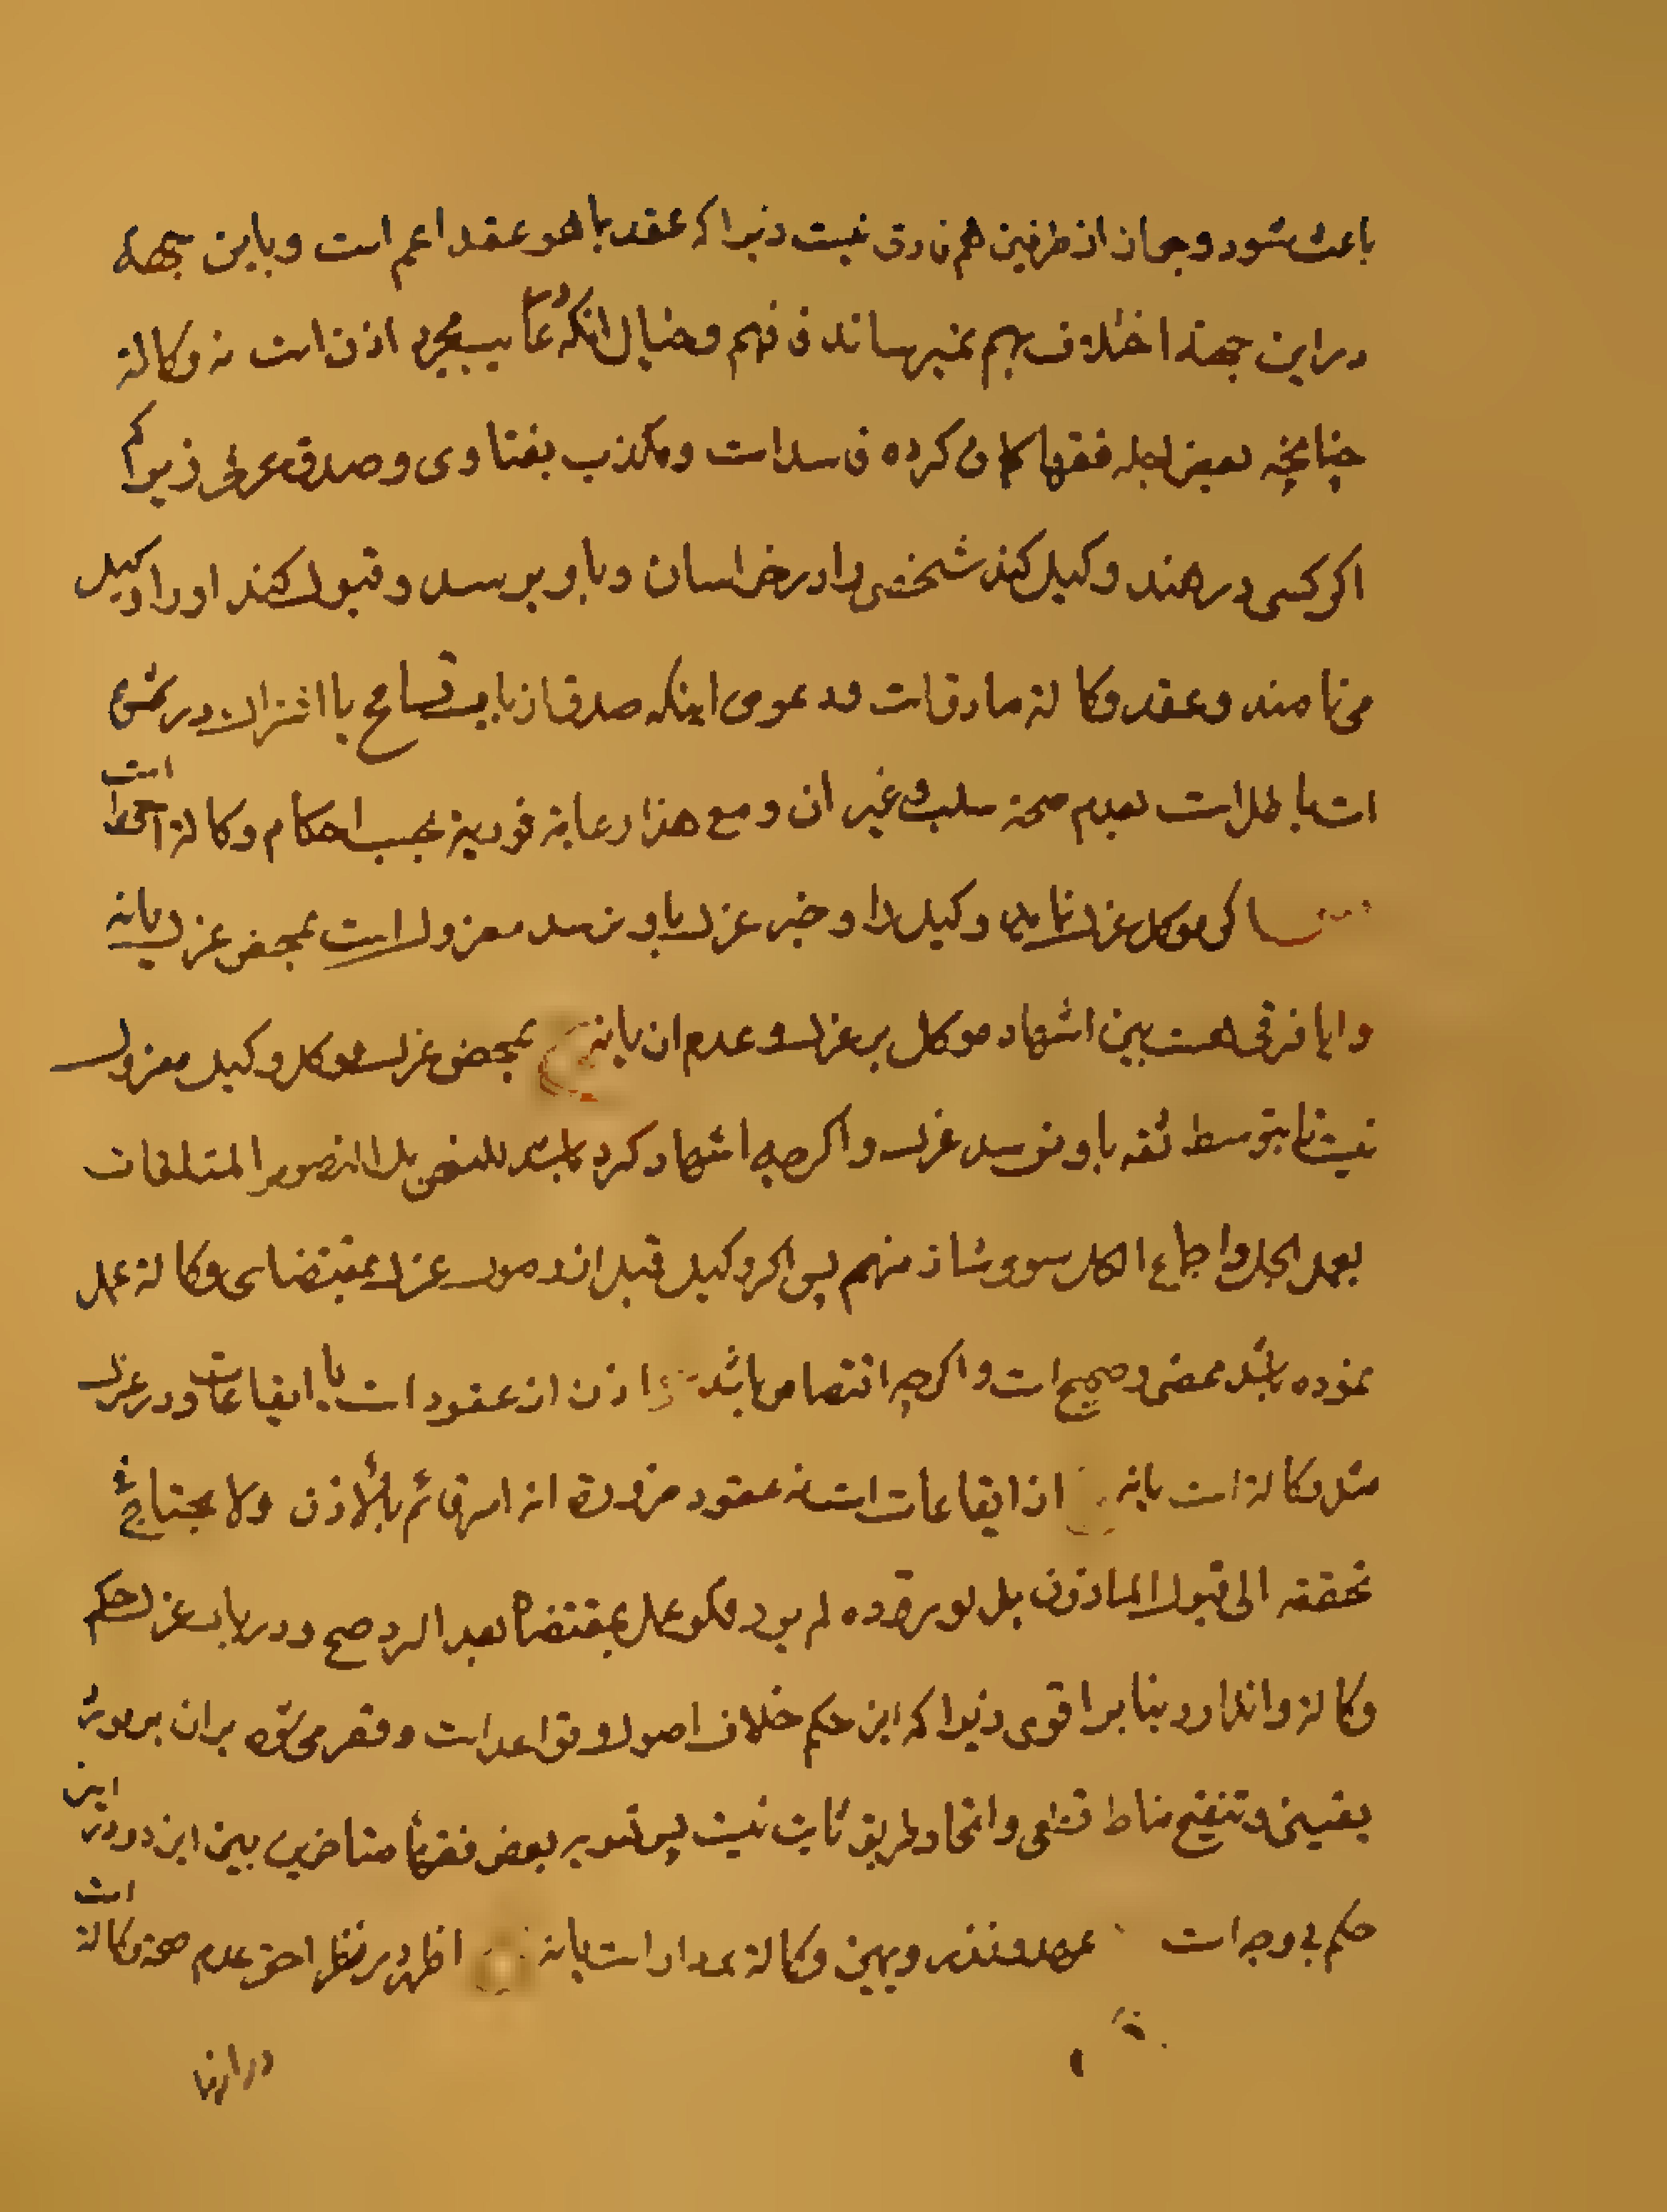 باعث شود و جواز از طرفین هم فارق نیست زیرا که عقد با هو عقد اعم است و باین جهة
در این جهة اختلاف بهم نمیرساند فافهم و خیال انکه غایب مجرد اذن است نه وکالة
چنانچه بعض اجله فقها کمان کرده فاسد است و مکذب بفتاوی و صدق عرفی زیرا که
اکر کسی در هند وکیل کند شخصی را در خراسان و باو برسد و قبول کند او را وکیل
می نامند و عقد وکالة صادق است و دعوی اینکه صدق از باب تسامح یا اشتراک در
است باطل است بعدم صحة سلب و غیر ان و مع هذا رعایة فوریة بحسب احکام وکالة احوط است
کی موکل عزل نماید وکیل را و خبر عزل باو نرسد معزول است بمحض عزل یا نه
و ایا فرقی هست بین اشهاد موکل بر عزل و عدم ان یا نه بمحض عزل موکل وکیل معزول
نیست تا بتوسط ثقه باو نرسد عزل و اکرچه اشهاد کرده باشد للنص بل النصوص المتلقات
بعمل الجل و اجماع الکل سوی شاذ منهم پس اکر وکیل قبل از وصول عزل بمقتضای وکالة عمل
نموده باشد ممضی و صحیح است و اکرچه اقتصاص باشد اذن از عقود است یا ایقاعات و در عزل
مثل وکالة است یا نه از ایقاعات است نه عقود ضرورة انه امر قائم بالاذن ولا یحتاج فی
تحققه الی قبول الماذون بل لو رده لم یرد فلو عمل بمقتضاه بعد الرد صح و در باب عزل حکم
وکالة را ندارد بنا بر اقوی زیرا که این حکم خلاف اصول و قواعد است و مقصر می شود بران بر مورد
یقینی و تنقیح مناط قطعی و اتحاد طریق ثابت نیست پس تسویه بعض فقهاء متاخرین بین این دو در این
حکم بی وجه است عهد و نذر و یمین وکالة بمدار است یا نه اظهر در نظر احقر عدم صحة وکالة است
در انها